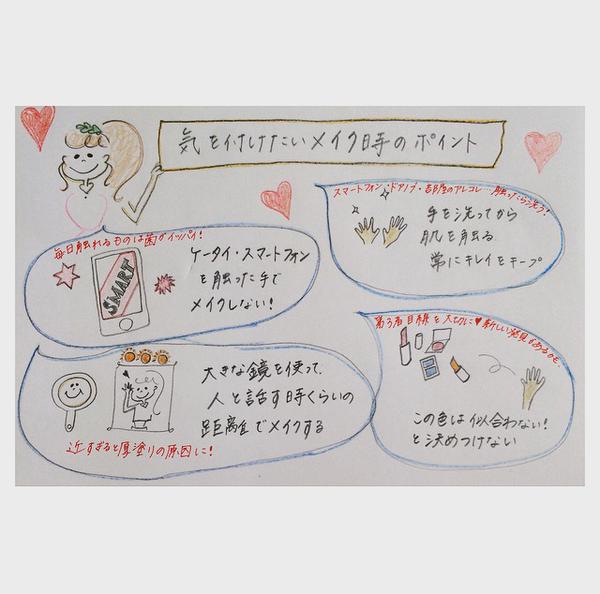 気を付けたいメイク時のポイント
毎日触れるものは菌がイッパイ!
SMART
ケータイ・スマートフォン
を触った手で
メイクしない!
スマートフォン・ドアノブ・お部屋のアレコレ 触ったら洗う!
手を洗ってから
肌を触る
常にキレイをキープ
大きな鏡を使って、
人と話す時くらいの
距離でメイクする
近すぎると厚塗りの原因に!
第3者目線を大切に♥新しい発見があるかも
この色は似合わない!
と決めつけない